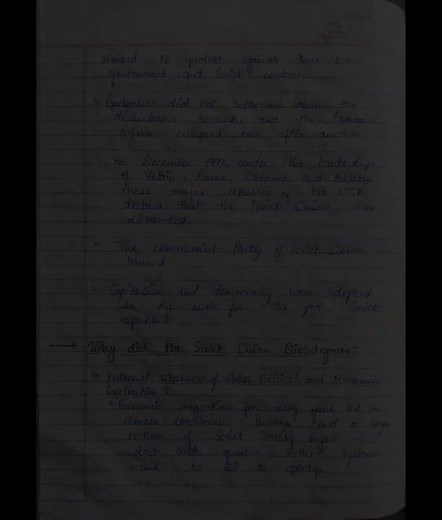 started to protest against their own
government and Soviet control
Gorbachev did not intervene when the
disturbances occurred, and the Communist
regimes collapsed one after another
In December 1991, under the leadership
of Yeltsin, Russia, Ukraine and Belarus
three major republics of the USSR,
declared that the Soviet Union was
disbanded.
The communist Party of Soviet Union was
banned
Capitalism and democracy were adopted
as the for the post Soviet
republics
→ Why did the Soviet Union Disintegrate:
Internal weakness of political and
institutions
Economic stagnation for many years led to
consumer and a large
section of Soviet society began to
doubt and question the system
and to do so openly.